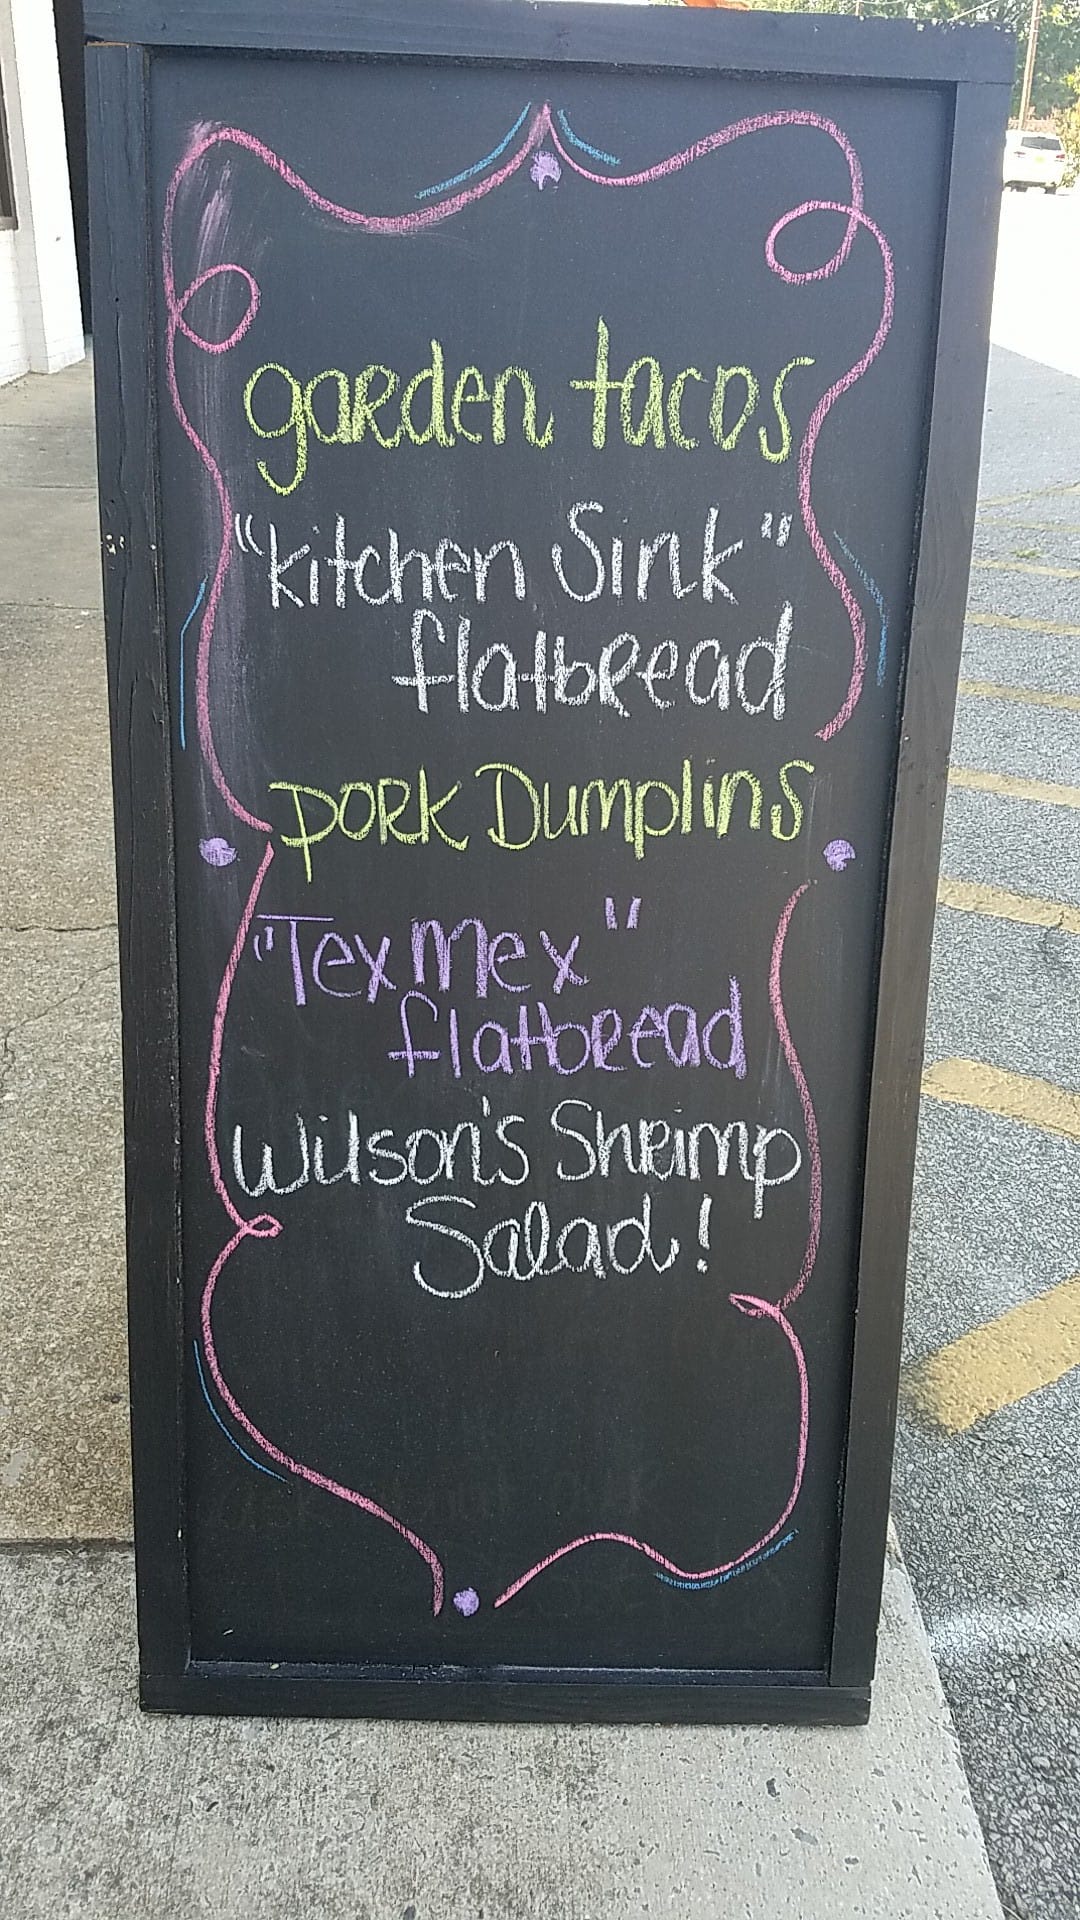 garden tacos
"kitchen Sink"
flatbread
pork Dumplins
"Tex Mex"
flatbread
Wilson's Shrimp
Salad!